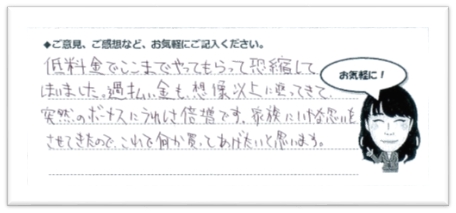 ◆ご意見、ご感想など、お気軽にご記入ください。
低料金でここまでやってもらって恐縮して
しまいました。過払い金も、想像以上に返ってきて、
突然のボーナスにうれしさ倍増です。家族にいやな思いを
させてきたので、これで何か買ってあげたいと思います。
お気軽に！